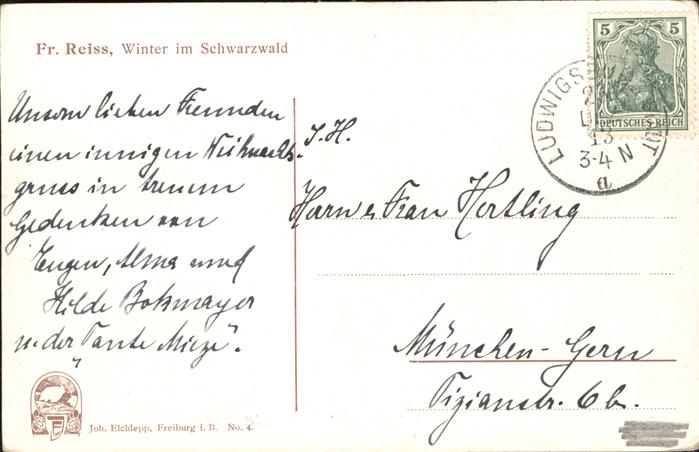 Fr. Reiss, Winter im Schwarzwald
Unsern lieben Freunden
einen innigen Weihnachts-
gruss in treuem
Gedenken von
Eugen, Alma und
Hilde Bokmayer
u. der "Tante Mieze".
S. H.
Herrn u. Frau Hertling
München-Gern
Tizianstr. 6 b.
5 5
DEUTSCHES REICH
LUDWIGS
13
3-4 N
a
Joh. Elchlepp, Freiburg i. B. No. 4.